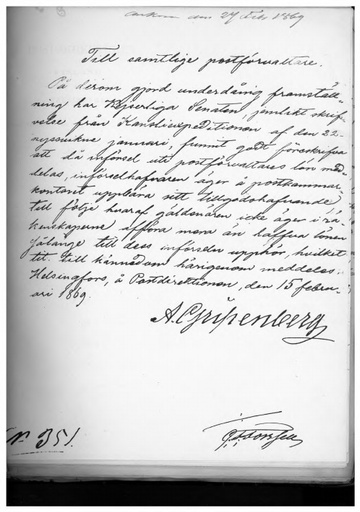 ankom den 24 Feb 1869
Till samtlige postförvaltare.
På derom gjord underdånig framställ-
ning har Kejserliga Senaten, jemlikt skrif-
velse från Kansliexpeditionen af den 22
nyssvikne januari, funnit godt föreskrifva
att då införsel uti postförvaltares lön med-
delas, införselhafvaren äger å postkammar
kontoret uppbära sitt tillgodohafvande
till följd hvaraf gäldenären icke äger i rä-
kenskaperne afföra mera än halfva lönen
sålänge till dess införseln upphör, hvilket
till kännedom härigenom meddelas.
Helsingfors, å Postdirektionen, den 15 febru-
ari 1869.
A. Gripenberg
N° 351.